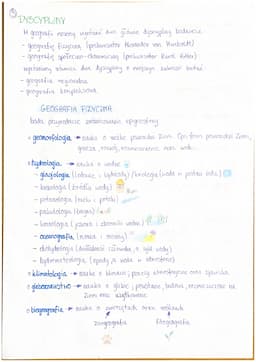 ① DYSCYPLINY
W geografii możemy wyróżnić dwie główne dyscypliny badawcze
- geografię fizyczną (prekursorem Alexander von Humboldt)
- geografię społeczno-ekonomiczną (prekursorem Karl Ritter)
wyróżniamy również dwie dyscypliny o mniejszym zakresie badań
- geografia regionalna
- geografia kompleksowa
GEOGRAFIA FIZYCZNA
bada przyrodnicze środowisko epigeosfery
geomorfologia → nauka o rzeźbie powierzchni Ziemi. Opis form powierzchni Ziemi,
geneza, rozwój, rozmieszczenie oraz wiek
hydrologia → nauka o wodzie
- glacjologia (lodowce i lądolody) / kriologia (woda w postaci lodu)
- krenologia (źródła wody)
- potamologia (rzeki i potoki)
- paludologia (bagna)
- limnologia (jeziora i zbiorniki wodne)
- oceanografia (morza i oceany)
- hydrometeorologia (opady i woda w atmosferze)
klimatologia → nauka o klimacie, procesy atmosferyczne oraz zjawiska
gleboznawstwo → nauka o glebie, powstanie, badania, rozmieszczenie na
Ziemi oraz użytkowanie
biogeografia → nauka o zwierzętach oraz roślinach
zoogeografia fitogeografia